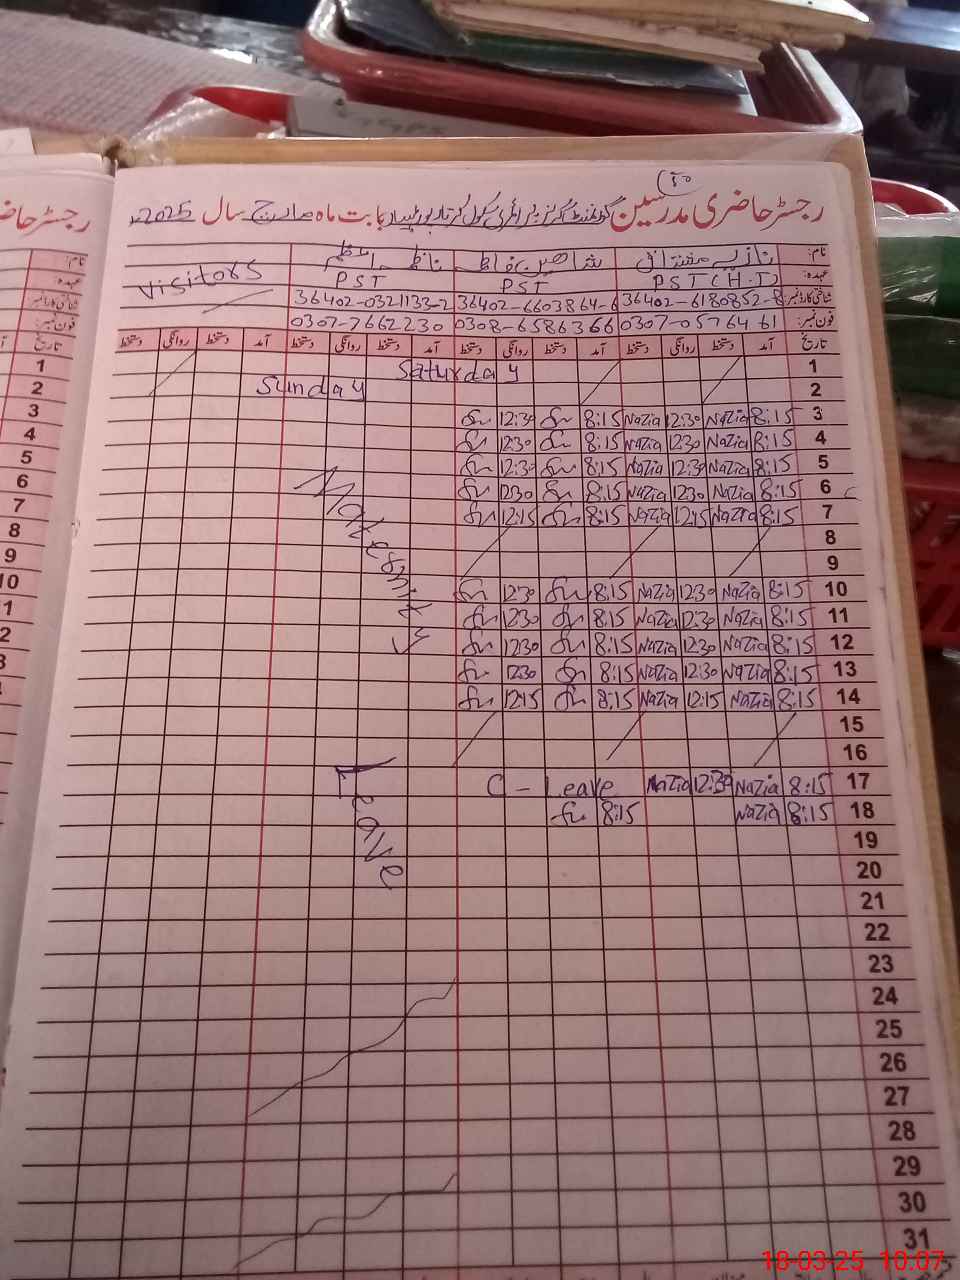 رجسٹر حاضری مدرسین گورنمنٹ گرلز پرائمری سکول بابت ماہ مارچ سال 2025ء
نام: نازیہ مشتاق شاھین ناظمہ
عہدہ: PST(H.T) PST PST visitors
شناختی کارڈ نمبر: 36402-6180852-8 36402-6603864-6 36402-0321133-2
فون نمبر: 0307-0576461 0308-6586366 0307-7662230
تاریخ آمد دستخط روانگی دستخط آمد دستخط روانگی دستخط آمد دستخط روانگی دستخط آمد دستخط روانگی دستخط
1 Saturday
2 Sunday
3 8:15 Nazia 12:30 Nazia 8:15 12:30
4 8:15 Nazia 12:30 Nazia 8:15 12:30
5 8:15 Nazia 12:30 Nazia 8:15 12:30
6 8:15 Nazia 12:30 Nazia 8:15 12:30
7 8:15 Nazia 12:15 Nazia 8:15 12:15
8
9
10 8:15 Nazia 12:30 Nazia 8:15 12:30
11 8:15 Nazia 12:30 Nazia 8:15 12:30
12 8:15 Nazia 12:30 Nazia 8:15 12:30
13 8:15 Nazia 12:30 Nazia 8:15 12:30
14 8:15 Nazia 12:15 Nazia 8:15 12:15
15
16
17 8:15 Nazia 12:30 Nazia C - Leave
18 8:15 Nazia 8:15
Leave
19
20
21
22
23
24
25
26
27
28
29
30
31
رجسٹر حاضری
1
2
3
4
5
6
7
8
9
10
18-03-25 10:07